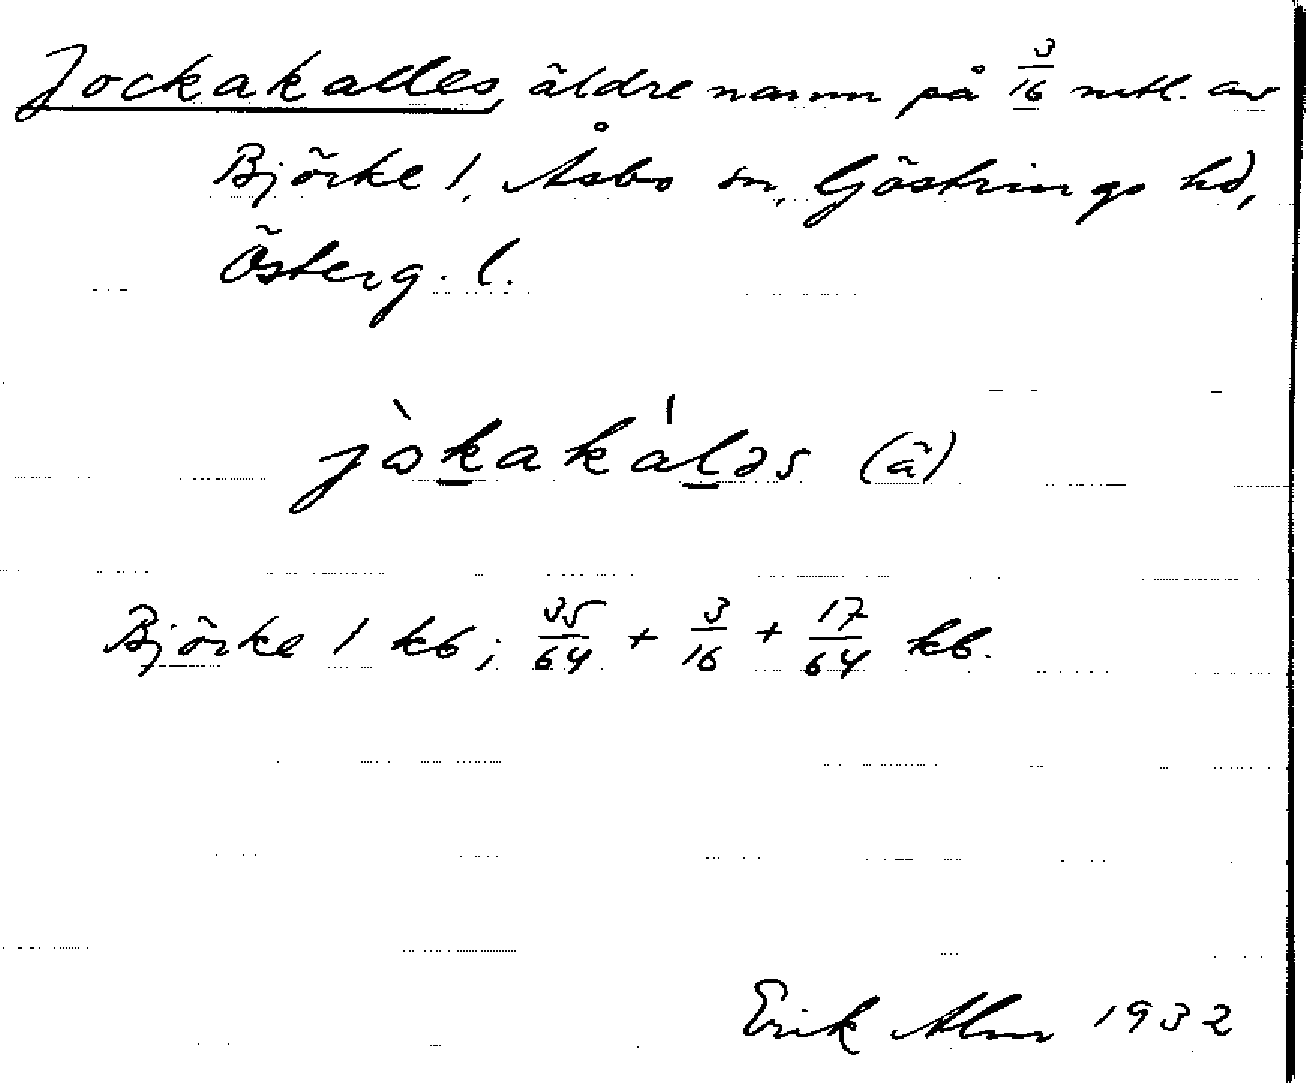 Jockakalles, äldre namn på 3/16 mtl. av
Björke 1, Åsbo sn, Göstrings hd,
Österg. l.
jòkakáləs (ä)
Björke 1 kb; 35/64 + 3/16 + 17/64 kb.
Erik Alm 1932